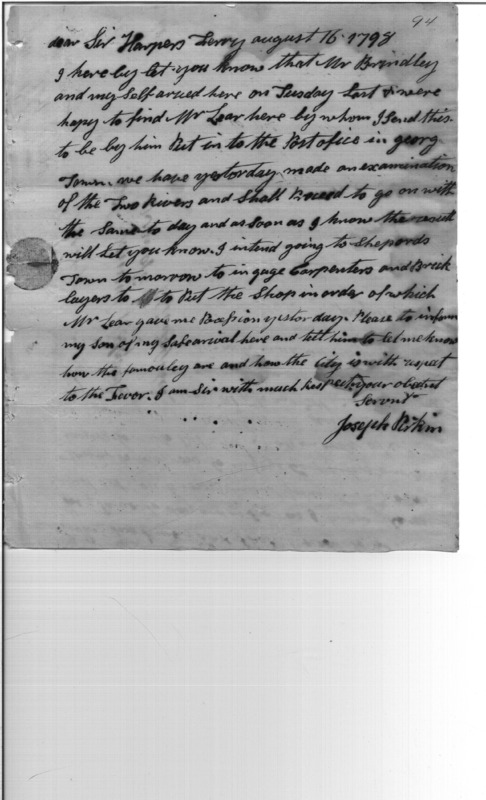 94
dear Sir Harpers Ferry august 16 1798
I here by let you know that Mr Brindley
and my self arued here on Tusday Last & were
hapy to find Mr Lear here by whom I Send this
to be by him Put in to the Post ofice in georg
Town. we have yesterday made an examination
of the Two Rivers and Shall to go on with
the Same to day and as Soon as I know the result
will Let you know. I intend going to Shepords
Town to morrow to in gage Carpenters and Brick
layers to to Put the Shop in order of which
Mr Lear gave me yestorday. Please to inform
my Son of my Safe arival here and tell him to let me know
how the famouley are and how the City is with respect
to the Fevor. I am Sir with much Respect your obedient
Servnt
Joseph Perkin